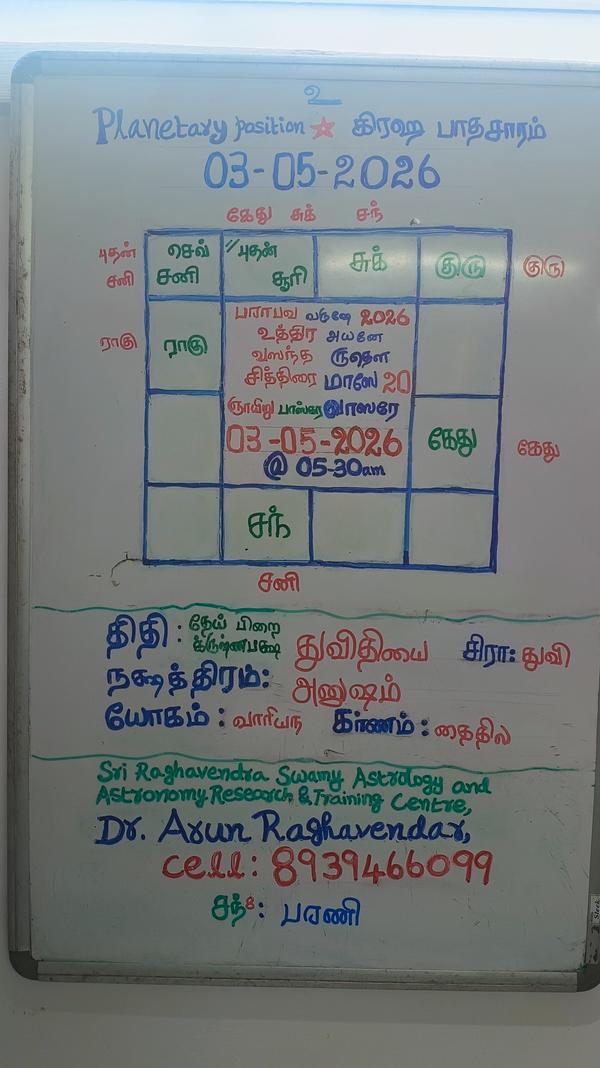 உ
Planetary position ☆ கிரஹ பாதசாரம்
03-05-2026
கேது சுக் சந்
புதன் சனி
செவ் சனி
"புதன் சூரி
சுக்
குரு
குரு
ராகு
ராகு
பராபவ வருஷே 2026
உத்திர அயனே
வஸந்த ருதௌ
சித்திரை மாஸே 20
ஞாயிறு பாஸ்கர வாஸரே
03-05-2026
@ 05-30am
கேது
கேது
சந்
சனி
திதி : தேய் பிறை க்ருஷ்ணபக்ஷ துவிதியை சிரா: துவி
நக்ஷத்திரம்: அனுஷம்
யோகம் : வாரியந கர்ணம் : தைதில
Sri Raghavendra Swamy Astrology and
Astronomy Research & Training Centre,
Dr. Arun Raghavendar,
cell: 8939466099
சந்8: பரணி